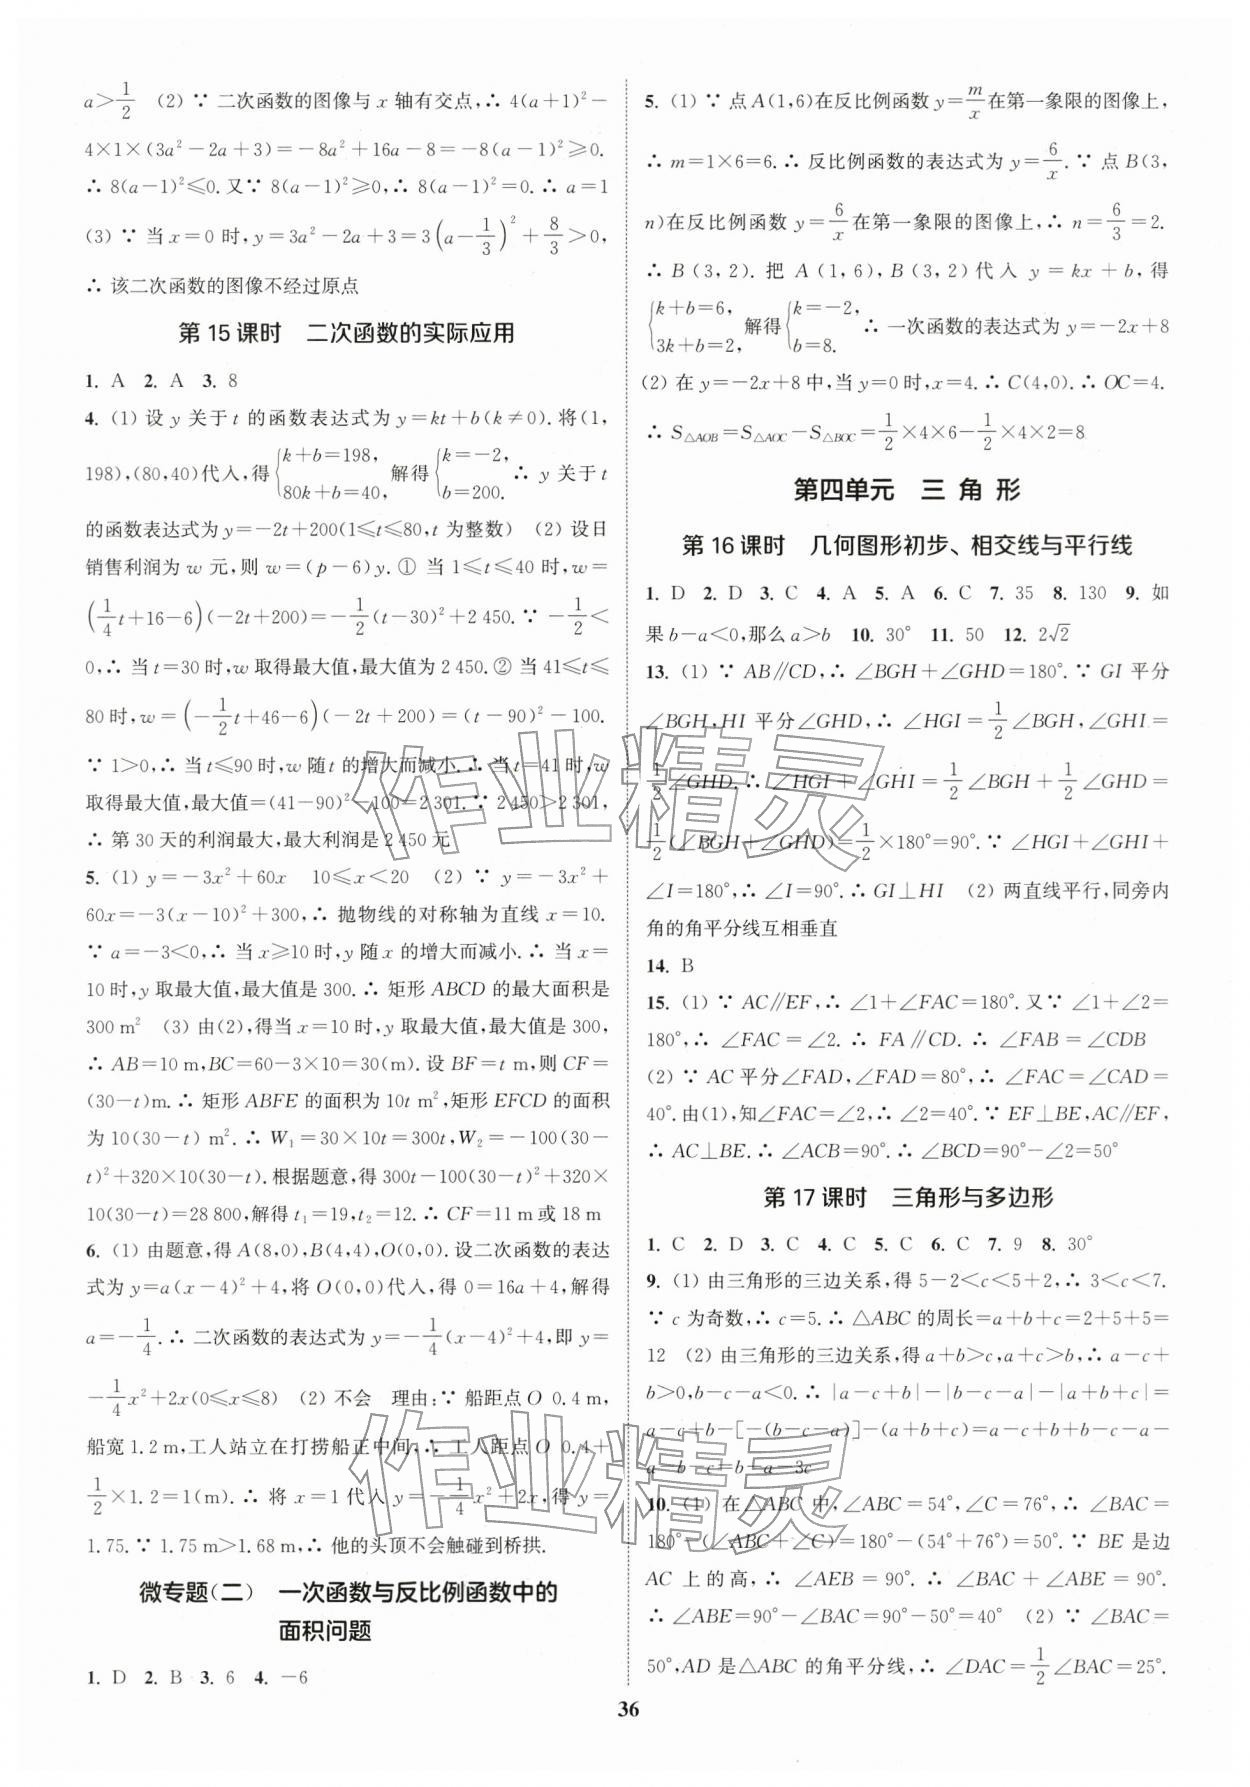 a>1/2 (2) ∵ 二次函数的图像与 x 轴有交点,∴ 4(a+1)²−
4×1×(3a²−2a+3)=−8a²+16a−8=−8(a−1)²≥0.
∴ 8(a−1)²≤0.又∵ 8(a−1)²≥0,∴ 8(a−1)²=0.∴ a=1
(3) ∵ 当 x=0 时,y=3a²−2a+3=3(a−1/3)²+8/3>0,
∴ 该二次函数的图像不经过原点
第 15 课时 二次函数的实际应用
1. A 2. A 3. 8
4. (1) 设 y 关于 t 的函数表达式为 y=kt+b(k≠0).将(1,
198),(80,40)代入,得{k+b=198, 80k+b=40, 解得{k=−2, b=200. ∴ y 关于 t
的函数表达式为 y=−2t+200(1≤t≤80,t 为整数) (2) 设日
销售利润为 w 元,则 w=(p−6)y.① 当 1≤t≤40 时,w=
(1/4t+16−6)(−2t+200)=−1/2(t−30)²+2 450.∵ −1/2<
0,∴ 当 t=30 时,w 取得最大值,最大值为 2 450.② 当 41≤t≤
80 时,w=(−1/2t+46−6)(−2t+200)=(t−90)²−100.
∵ 1>0,∴ 当 t≤90 时,w 随 t 的增大而减小.∴ 当 t=41 时,w
取得最大值,最大值=(41−90)²−100=2 301.∵ 2 450>2 301,
∴ 第 30 天的利润最大,最大利润是 2 450 元
5. (1) y=−3x²+60x 10≤x<20 (2) ∵ y=−3x²+
60x=−3(x−10)²+300,∴ 抛物线的对称轴为直线 x=10.
∵ a=−3<0,∴ 当 x≥10 时,y 随 x 的增大而减小.∴ 当 x=
10 时,y 取最大值,最大值是 300.∴ 矩形 ABCD 的最大面积是
300 m² (3) 由(2),得当 x=10 时,y 取最大值,最大值是 300,
∴ AB=10 m,BC=60−3×10=30(m).设 BF=t m,则 CF=
(30−t)m.∴ 矩形 ABFE 的面积为 10t m²,矩形 EFCD 的面积
为 10(30−t) m².∴ W₁=30×10t=300t,W₂=−100(30−
t)²+320×10(30−t).根据题意,得 300t−100(30−t)²+320×
10(30−t)=28 800,解得 t₁=19,t₂=12.∴ CF=11 m 或 18 m
6. (1) 由题意,得 A(8,0),B(4,4),O(0,0).设二次函数的表达
式为 y=a(x−4)²+4,将 O(0,0)代入,得 0=16a+4,解得
a=−1/4.∴ 二次函数的表达式为 y=−1/4(x−4)²+4,即 y=
−1/4x²+2x(0≤x≤8) (2) 不会 理由:∵ 船距点 O 0.4 m,
船宽 1.2 m,工人站立在打捞船正中间,∴ 工人距点 O 0.4+
1/2×1.2=1(m).∴ 将 x=1 代入 y=−1/4x²+2x,得 y=
1.75.∵ 1.75 m>1.68 m,∴ 他的头顶不会触碰到桥拱.
微专题(二) 一次函数与反比例函数中的
面积问题
1. D 2. B 3. 6 4. −6
5. (1) ∵ 点 A(1,6)在反比例函数 y=m/x 在第一象限的图像上,
∴ m=1×6=6.∴ 反比例函数的表达式为 y=6/x.∵ 点 B(3,
n)在反比例函数 y=6/x 在第一象限的图像上,∴ n=6/3=2.
∴ B(3,2).把 A(1,6),B(3,2)代入 y=kx+b,得
{k+b=6, 3k+b=2, 解得{k=−2, b=8. ∴ 一次函数的表达式为 y=−2x+8
(2) 在 y=−2x+8 中,当 y=0 时,x=4.∴ C(4,0).∴ OC=4.
∴ S△AOB=S△AOC−S△BOC=1/2×4×6−1/2×4×2=8
第四单元 三 角 形
第 16 课时 几何图形初步、相交线与平行线
1. D 2. D 3. C 4. A 5. A 6. C 7. 35 8. 130 9. 如
果 b−a<0,那么 a>b 10. 30° 11. 50 12. 2√2
13. (1) ∵ AB∥CD,∴ ∠BGH+∠GHD=180°.∵ GI 平分
∠BGH,HI 平分∠GHD,∴ ∠HGI=1/2∠BGH,∠GHI=
1/2∠GHD.∴ ∠HGI+∠GHI=1/2∠BGH+1/2∠GHD=
1/2(∠BGH+∠GHD)=1/2×180°=90°.∵ ∠HGI+∠GHI+
∠I=180°,∴ ∠I=90°.∴ GI⊥HI (2) 两直线平行,同旁内
角的角平分线互相垂直
14. B
15. (1) ∵ AC∥EF,∴ ∠1+∠FAC=180°.又∵ ∠1+∠2=
180°,∴ ∠FAC=∠2.∴ FA∥CD.∴ ∠FAB=∠CDB
(2) ∵ AC 平分∠FAD,∠FAD=80°,∴ ∠FAC=∠CAD=
40°.由(1),知∠FAC=∠2,∴ ∠2=40°.∵ EF⊥BE,AC∥EF,
∴ AC⊥BE.∴ ∠ACB=90°.∴ ∠BCD=90°−∠2=50°
第 17 课时 三角形与多边形
1. C 2. D 3. C 4. C 5. C 6. C 7. 9 8. 30°
9. (1) 由三角形的三边关系,得 5−2<c<5+2,∴ 3<c<7.
∵ c 为奇数,∴ c=5.∴ △ABC 的周长=a+b+c=2+5+5=
12 (2) 由三角形的三边关系,得 a+b>c,a+c>b,∴ a−c+
b>0,b−c−a<0.∴ |a−c+b|−|b−c−a|−|a+b+c|=
a−c+b−[−(b−c−a)]−(a+b+c)=a−c+b+b−c−a−
a−b−c=b−a−3c
10. (1) 在△ABC 中,∠ABC=54°,∠C=76°,∴ ∠BAC=
180°−(∠ABC+∠C)=180°−(54°+76°)=50°.∵ BE 是边
AC 上的高,∴ ∠AEB=90°.∴ ∠BAC+∠ABE=90°.
∴ ∠ABE=90°−∠BAC=90°−50°=40° (2) ∵ ∠BAC=
50°,AD 是△ABC 的角平分线,∴ ∠DAC=1/2∠BAC=25°.
36
作业精灵
作业精灵